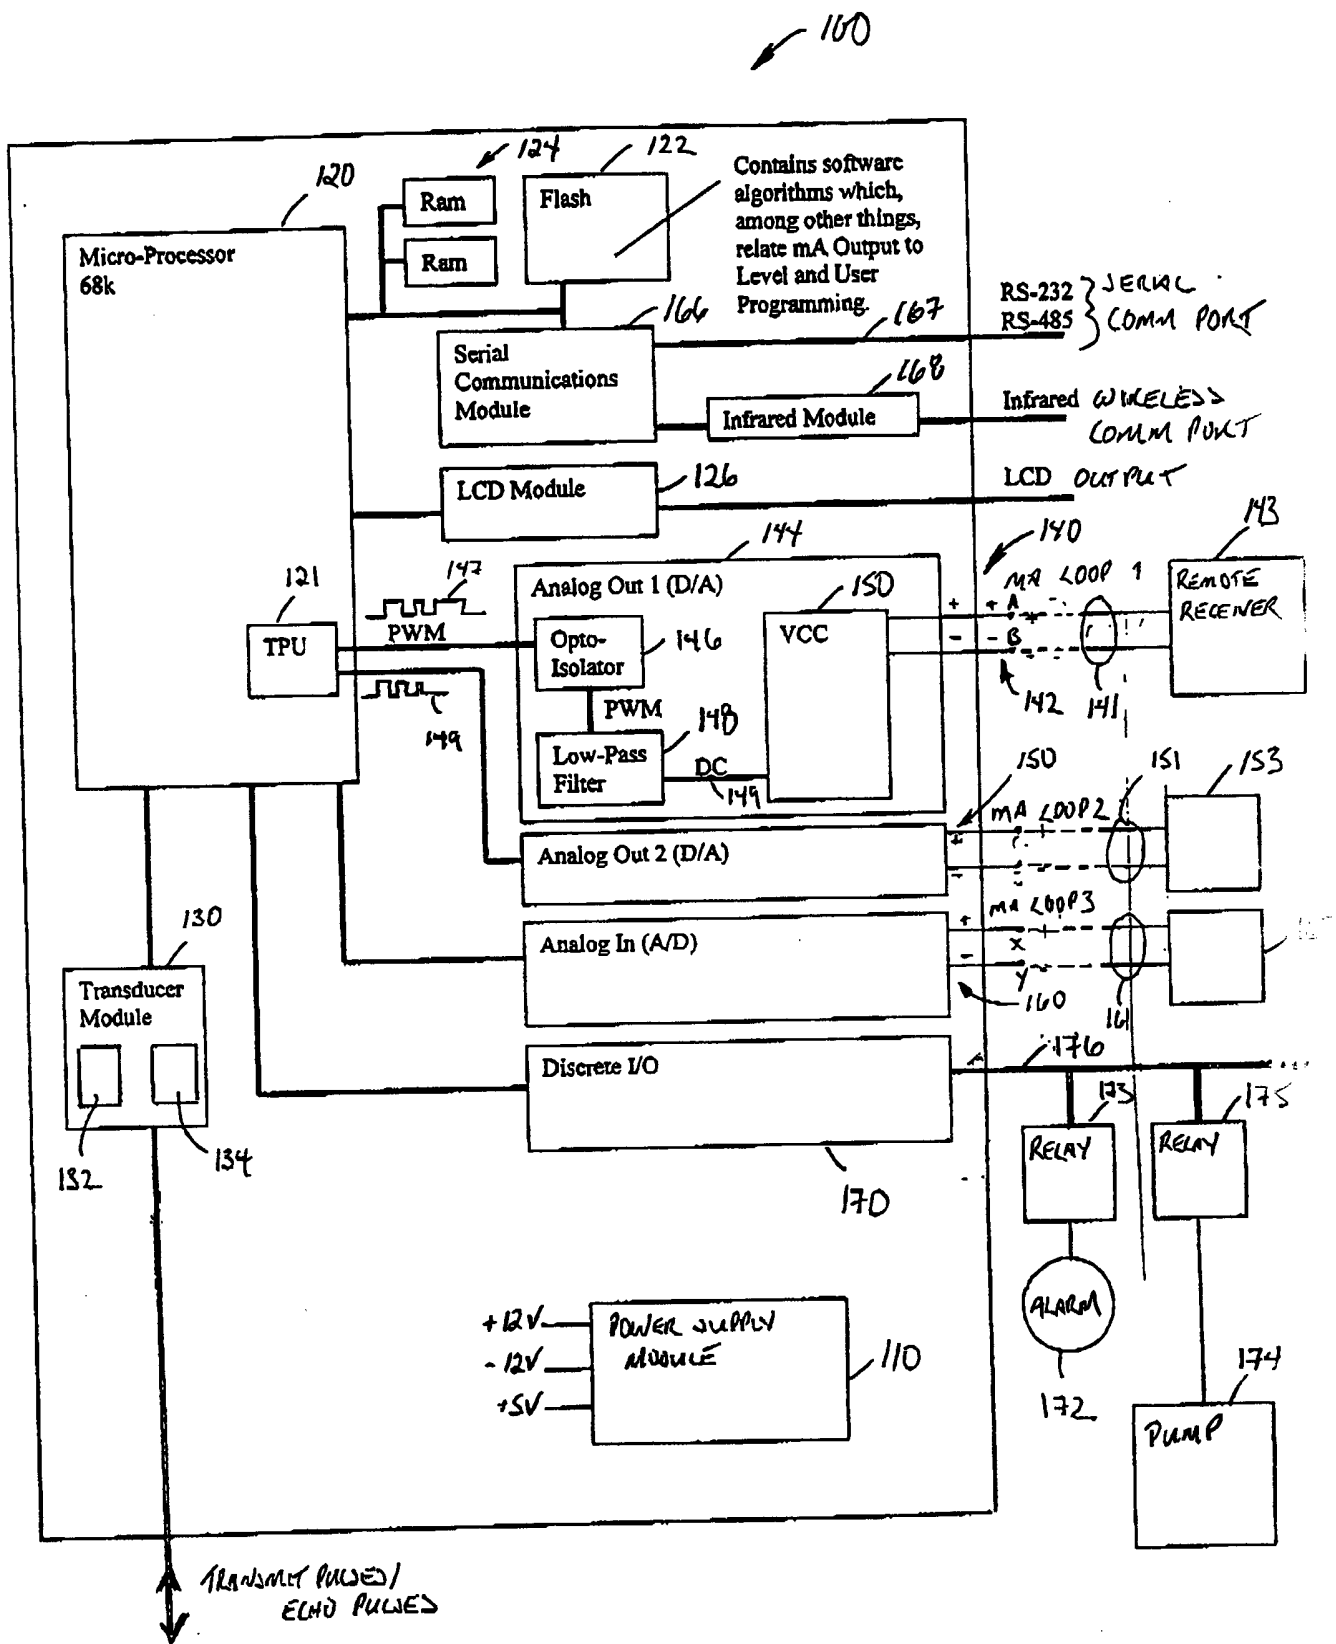 100
124
122
120
Ram
Flash
Contains software
algorithms which,
among other things,
relate mA Output to
Level and User
Programming.
Micro-Processor
68k
Ram
166
167
RS-232
RS-485
SERIAL
COMM PORT
Serial
Communications
Module
168
Infrared Module
Infrared
WIRELESS
COMM PORT
LCD Module
126
LCD OUTPUT
144
140
143
147
121
Analog Out 1 (D/A)
150
MA LOOP 1
REMOTE
RECEIVER
PWM
TPU
Opto-
Isolator
146
VCC
+
-
+ A
- B
149
PWM
148
142
141
Low-Pass
Filter
DC
149
150
151
153
MA LOOP2
Analog Out 2 (D/A)
+
-
130
MA LOOP3
Analog In (A/D)
+
-
X
Y
160
161
Transducer
Module
176
Discrete I/O
173
175
132
134
RELAY
RELAY
170
+12V
-12V
+5V
POWER SUPPLY
MODULE
110
ALARM
172
174
PUMP
TRANSMIT PULSES/
ECHO PULSES